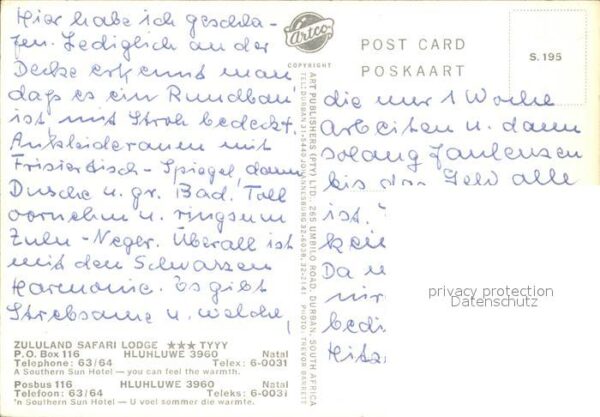 Hier habe ich geschla-
fen. Lediglich an der
Decke erkennt man
daß es ein Rundbau
ist mit Stroh bedeckt.
Ankleideraum mit
Frisiertisch-Spiegel dann
Dusche u. gr. Bad. Toll
vornehm u. ringsum
Zulu-Neger. Überall ist
mit den Schwarzen
Harmonie. Es gibt
Strebsame u. welche,
ZULULAND SAFARI LODGE ★★★ TYYY
P.O. Box 116 HLUHLUWE 3960 Natal
Telephone: 63/64 Telex: 6-0031
A Southern Sun Hotel — you can feel the warmth.
Posbus 116 HLUHLUWE 3960 Natal
Telefoon: 63/64 Teleks: 6-0031
'n Southern Sun Hotel — U voel sommer die warmte.
Artco
COPYRIGHT
ART PUBLISHERS (PTY) LTD., 265 UMBILO ROAD, DURBAN, SOUTH AFRICA
TEL: DURBAN 31-9440 JOHANNESBURG 32-6038, 32-2141 PHOTO: TREVOR BARRETT
POST CARD
POSKAART
S.195
die nur 1 Woche
Arbeiten u. dann
solang faulenzen
bis das Geld alle
ist.
Da
bedi
Hitz
privacy protection
Datenschutz